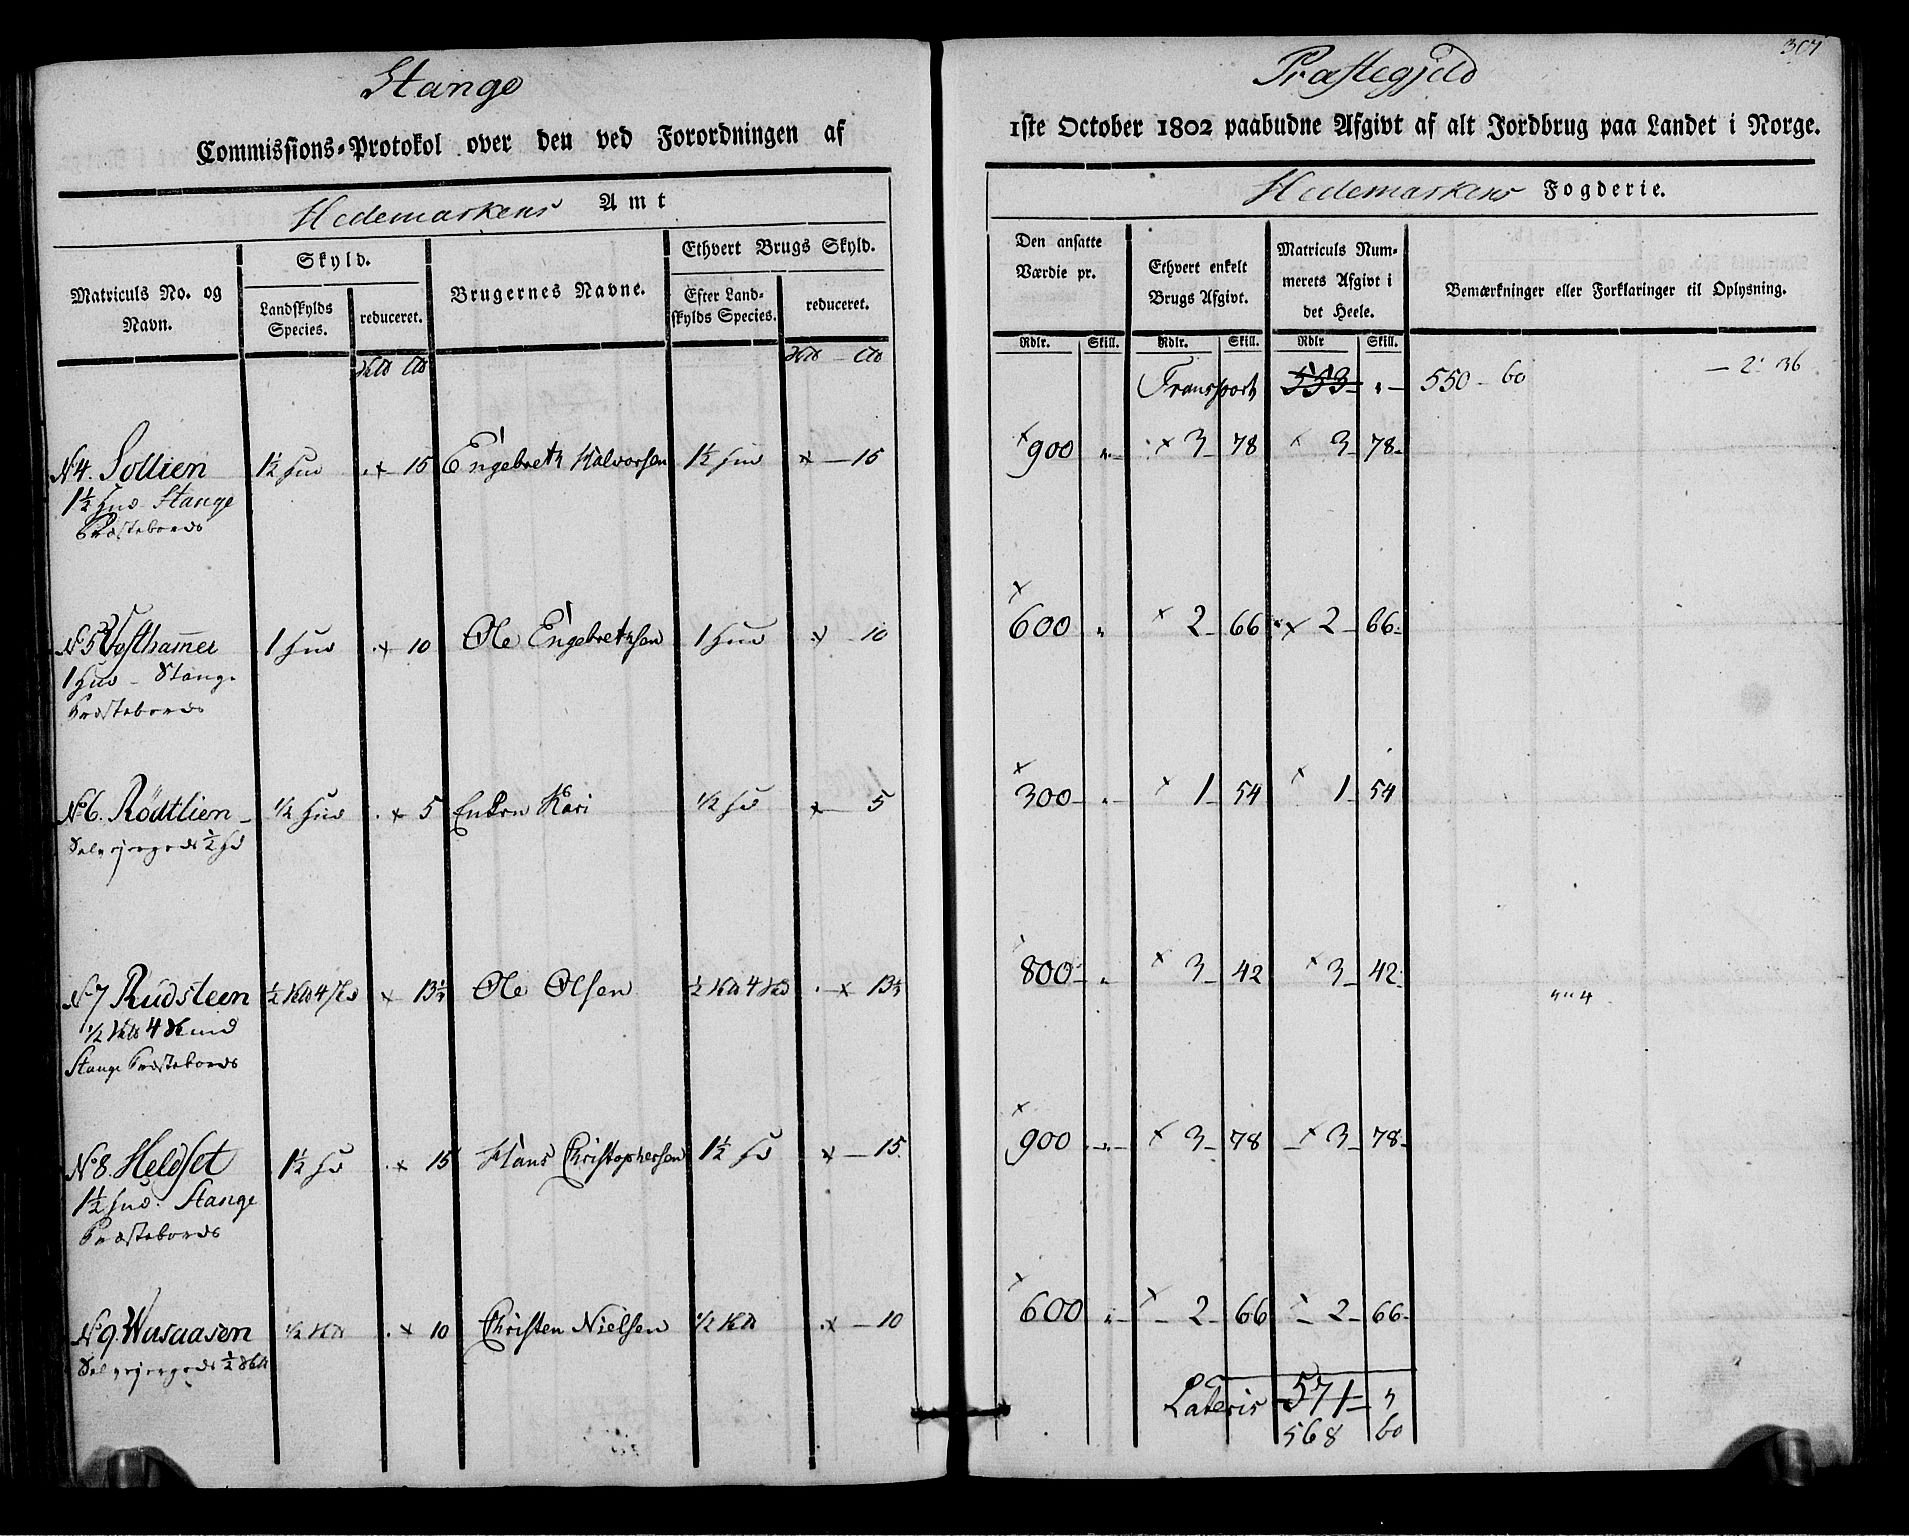 Stange
Commissions-Protokol over den ved Forordningen af
Hedemarkens Amt
Matriculs No. og Navn.
Skyld.
Landskylds Species.
reduceret.
Brugernes Navne.
Ethvert Brugs Skyld.
Efter Landskylds Species.
reduceret.
No 4. Sollien 1½ Hud × 15 Engebreth Halvorsen 1½ Hud × — 15
1½ Hud Stange
Præstebords
No 5 1 Hud × 10 Ole Engebrethsen 1 Hud × — 10
1 Hud - Stange
Præstebords
No 6. Rödtlien ½ Hud × 5 Enken Kari ½ Hd × — 5
Selvejergods ½ Hd
No 7 Rudsteen ½ 4 × 13½ Ole Olsen ½ 4 × 13½
½ 4 Skind
Stange Præstebords
No 8. Heldset 1½ Hd × 15 Hans Christophersen 1½ Hd × — 15
1½ Hud. Stange
Præstebords
No 9. ½ × 10 Christen Nielsen ½ × — 10
Selvejergods ½
307
Præstegjeld
1ste October 1802 paabudne Afgivt af alt Jordbrug paa Landet i Norge.
Hedemarkens Fogderie.
Den ansatte Værdie pr.
Ethvert enkelt Brugs Afgivt.
Matriculs Nummerets Afgivt i det Heele.
Bemærkninger eller Forklaringer til Oplysning.
Rdlr. Skill. Rdlr. Skill. Rdlr Skill.
Transport 553 „ — 550 - 60 — 2: 36
× 900 „ × 3 78 × 3 78
× 600 „ × 2 66 × 2 66
× 300 „ × 1 54 × 1 54
800 „ × 3 42 × 3 42
„ „ 4
× 900 „ × 3 78 × 3 78
× 600 „ × 2 66 2 66
Lateris 571 „
568 60